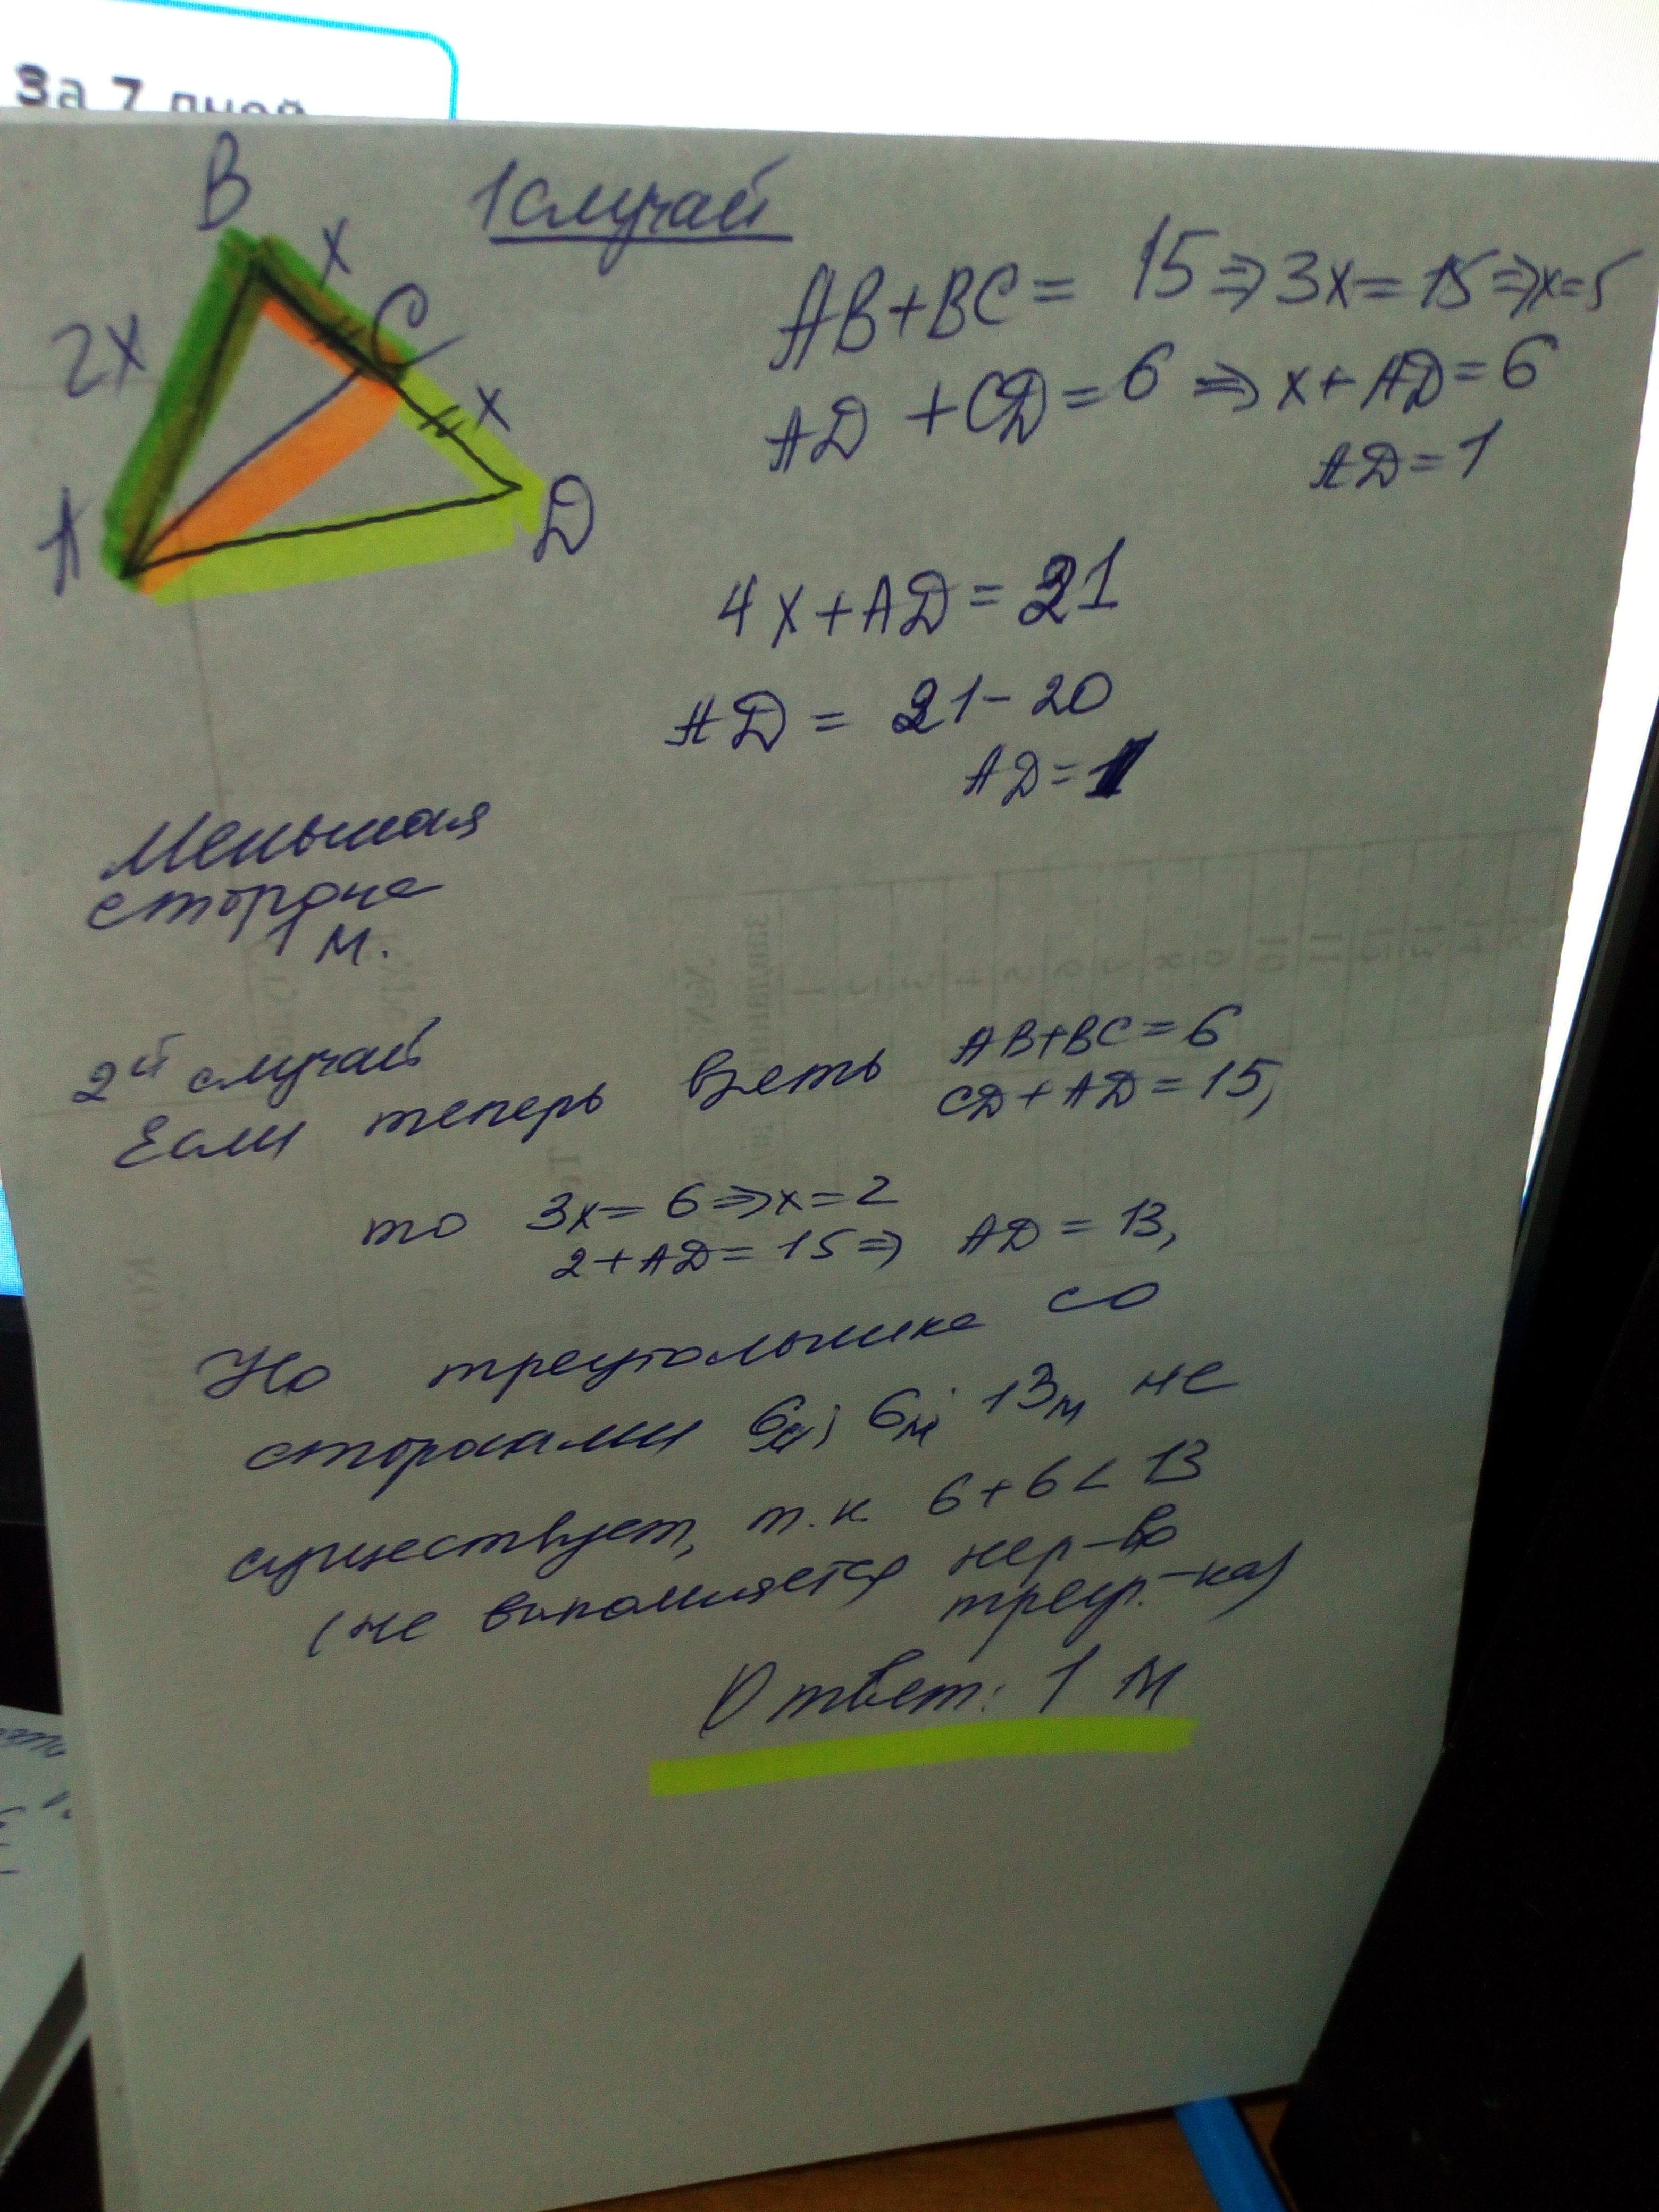 За 7 дней
1 случай
B
x
2x
C
x
A
D
AB+BC= 15⇒3x=15⇒x=5
AD+CD=6 ⇒ x+AD=6
AD=1
4x+AD=21
AD = 21-20
AD=1
Меньшая
сторона
1 м.
2й случай
Если теперь взять AB+BC=6
CD+AD=15,
то 3x=6⇒x=2
2+AD=15⇒ AD=13,
Но треугольника со
сторонами 6м; 6м; 13м не
существует, т.к. 6+6<13
(не выполняется нер-во
треуг.-ка)
Ответ: 1 м